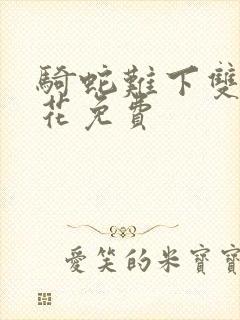 騎蛇難下雙
花免費
愛笑的米寶寶